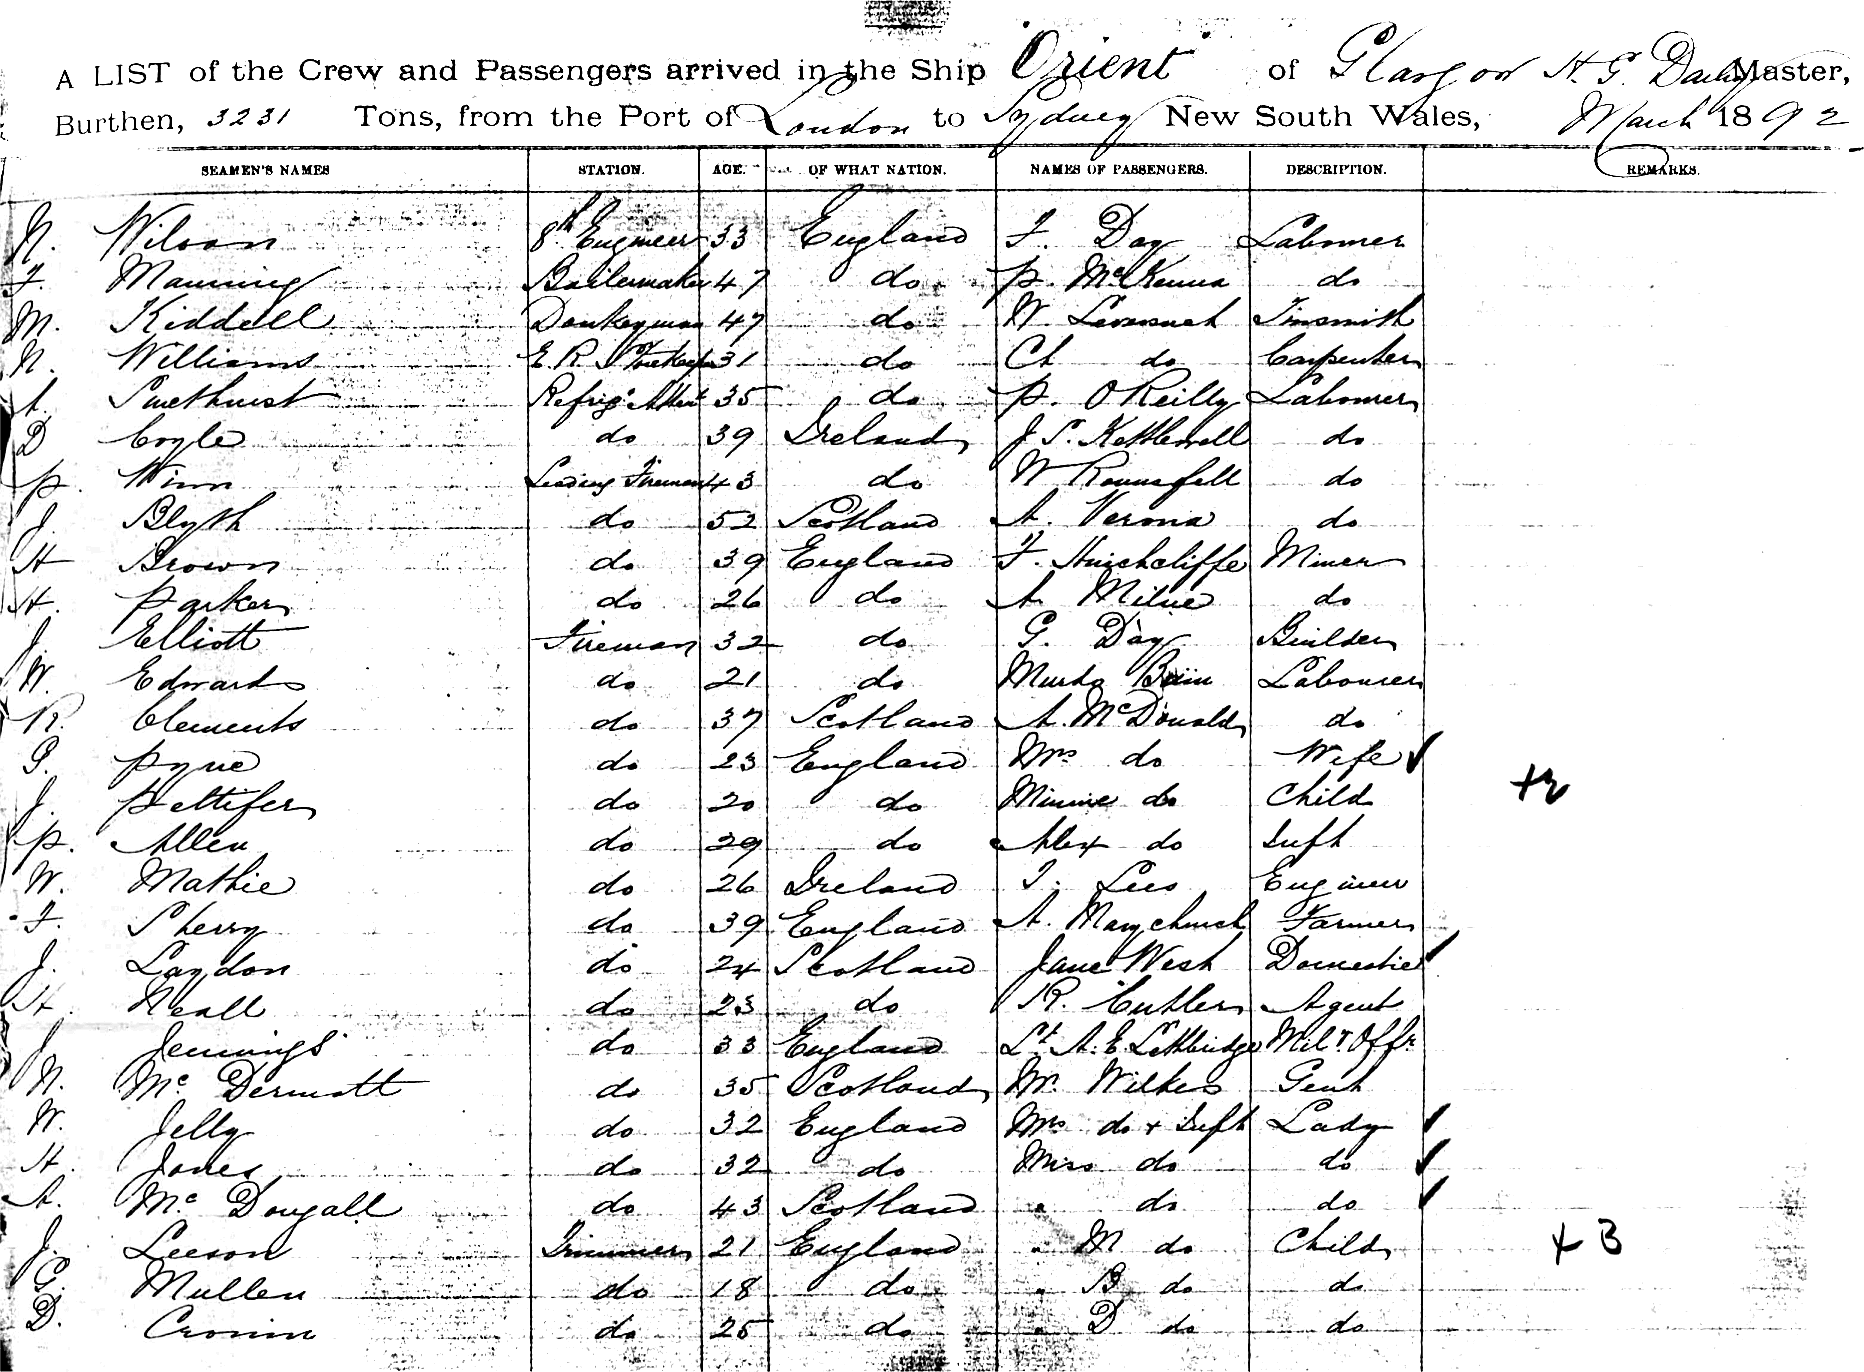 A LIST of the Crew and Passengers arrived in the Ship Orient of Glasgow H. G. Master,
Burthen, 3231 Tons, from the Port of London to Sydney New South Wales, March 1892
SEAMEN'S NAMES STATION. AGE. OF WHAT NATION. NAMES OF PASSENGERS. DESCRIPTION. REMARKS.
N. Wilson 8th Engineer 33 England F. Day Labourer
F. Manning Boilermaker 47 do P. McKenna do
M. Kiddell Donkeyman 47 do W. Tinsmith
N. Williams E. R. Storekeepr 31 do Ch do Carpenter
A. Smethurst Refrigr Attent 35 do P. O'Reilly Labourer
D Coyle do 39 Ireland J S. Kettlewell do
P. Winn Leading Fireman 43 do W Rounsfell do
J. Blyth do 52 Scotland A. Verona do
H Brown do 39 England F. Hinchcliffe Miner
H. Parker do 26 do A. Milne do
J. Elliott Fireman 32 do G. Day Builder
W. Edwards do 21 do Murdo Bain Labourer
R. Clements do 37 Scotland A. McDonald do
G. Pyne do 23 England Mrs do Wife
J. Pettifer do 20 do Minnie do Child +2
P. Allen do 29 do Alex do Inft
W. Mathie do 26 Ireland T. Lees Engineer
F. Sherry do 39 England A. Marychurch Farmer
J. Laydon do 24 Scotland Jane West Domestic
H. Neall do 23 do R. Cutler Agent
J. Jennings do 33 England Lt. A. E. Lethbridge Milty Offr
N. Mc Dermott do 35 Scotland W. Wilkes Gent
W. Jelly do 32 England Mrs do + Inft Lady
H. Jones do 32 do Miss do do
A. Mc Dougall do 43 Scotland " do do
J. Leeson Trimmer 21 England " M do Child + 3
G. Mullen do 18 do " B do do
D. Cronin do 25 do " D do do